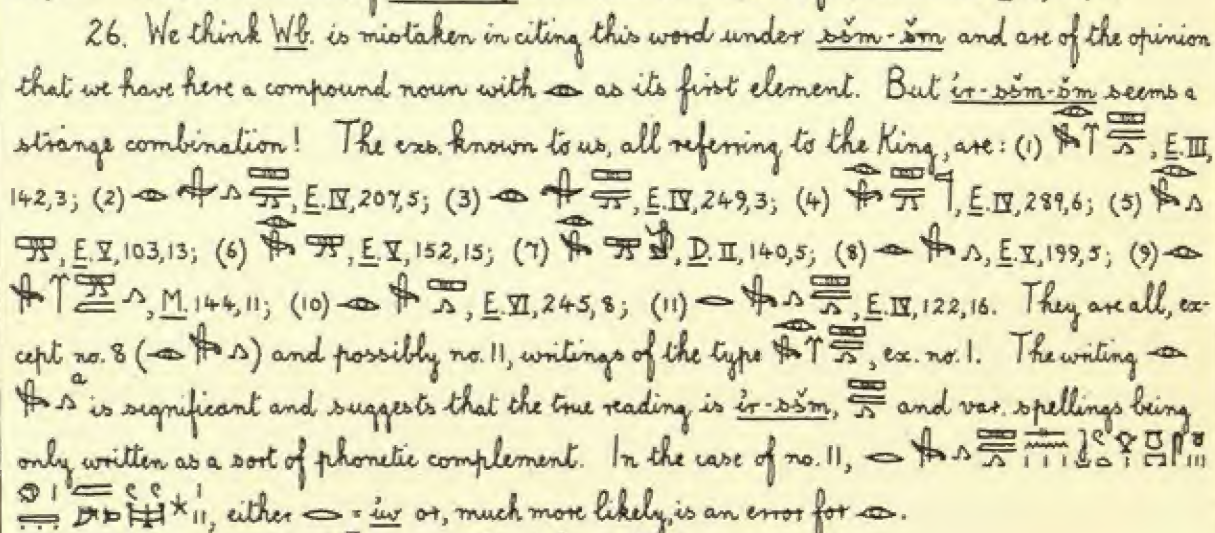 26. We think Wb. is mistaken in citing this word under sšm-šm and are of the opinion
that we have here a compound noun with 𓁹 as its first element. But ı͗r-sšm-šm seems a
strange combination! The exs. known to us, all referring to the King, are: (1) , E.III,
142,3; (2) 𓁹 , E.IV,207,5; (3) 𓁹 , E.IV,249,3; (4) , E.IV,289,6; (5)
, E.V,103,13; (6) , E.V,152,15; (7) , D.II,140,5; (8) 𓁹 𓂻, E.V,199,5; (9) 𓁹
𓂻, M.144,11; (10) 𓁹 , E.VI,245,8; (11) 𓂋 𓂻 , E.IV,122,16. They are all, ex-
cept no. 8 (𓁹 𓂻) and possibly no. 11, writings of the type , ex. no. 1. The writing 𓁹
𓂻 a is significant and suggests that the true reading is ı͗r-sšm, and var. spellings being
only written as a sort of phonetic complement. In the case of no. 11, 𓂋 𓂻
, either 𓂋 = ı͗w or, much more likely, is an error for 𓁹.